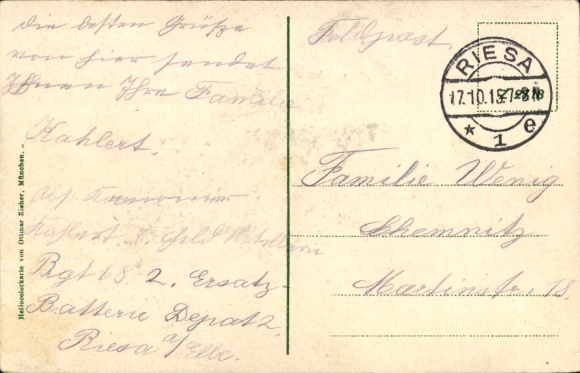 die besten Grüße
von hier sendet
Ihnen Ihre Familie
Kahlert.
Abs. Kanonier
Kahlert. Feld
Rgt 68. 2. Ersatz-
Batterie Depot 2.
Riesa a/Elbe.
Heliocolorkarte von Ottmar Zieher, München.
Feldpost.
RIESA
17.10.15. 7-8
* 1 e
Familie Wenig
Chemnitz
Martinstr. 18.